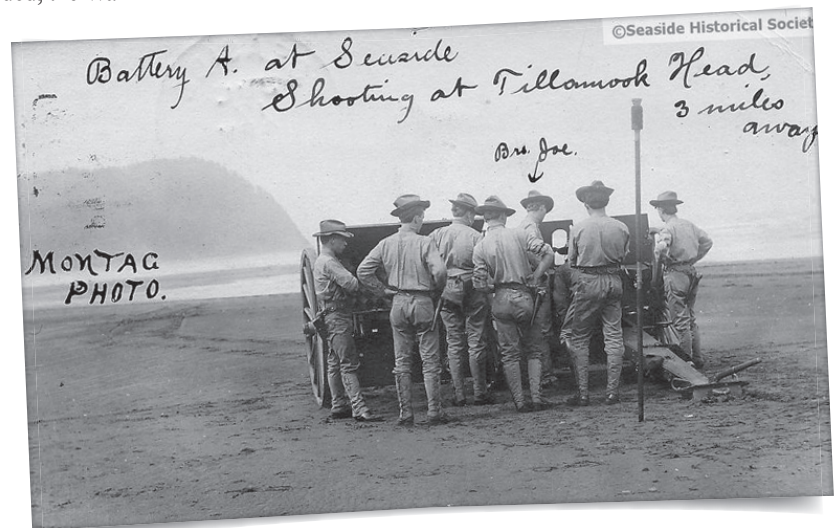 ©Seaside Historical Societ
Battery A. at Seaside
Shooting at Tillamook Head,
3 miles
away
Bro. Joe.
MONTAG
PHOTO.